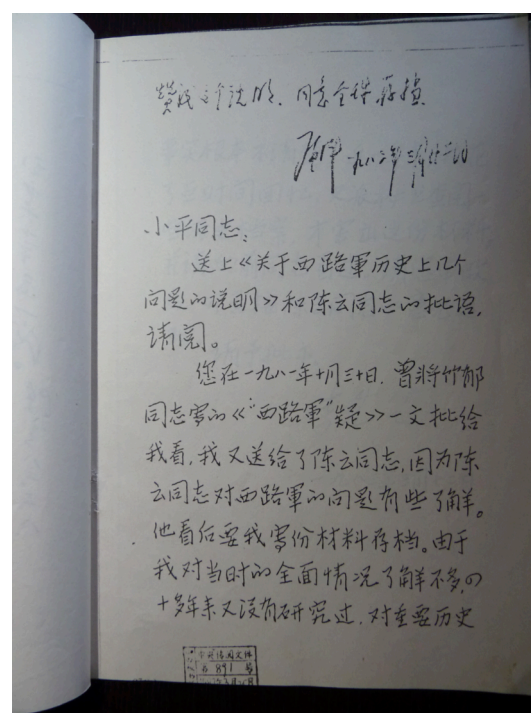 赞成这个说明，同意全件存档。
一九八三年三月廿二日
小平同志：
送上《关于西路軍历史上几个
问题的说明》和陈云同志的批语，
请阅。
您在一九八一年十月三十日，曾将竹郁
同志写的《“西路軍”疑》一文批给
我看，我又送给了陈云同志，因为陈
云同志对西路軍的问题有些了解。
他看后要我写份材料存档。由于
我对当时的全面情况了解不多，四
十多年来又没有研究过，对重要历史
891